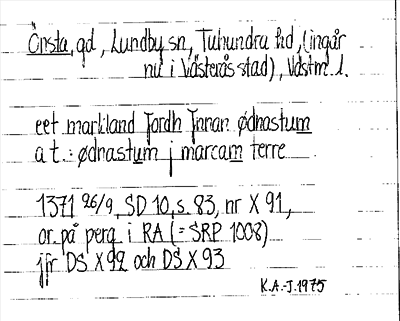 Önsta, gd, Lundby sn, Tuhundra hd, (ingår
nu i Västerås stad), Västm. l.
eet markland Jordh Jnnan ødnastum
a t. : ødnastum j marcam terre
1371 26/9, SD 10, s. 83, nr X 91,
or. på perg. i RA (= SRP 1008)
jfr DS X 92 och DS X 93
K.A.-J. 1975